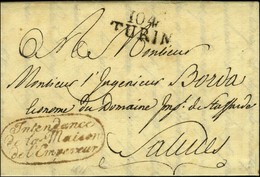 104
TURIN
A Monsieur
Monsieur l'Ingenieur Borda
Econome du Domaine Imp.l de Staffarde
Intendance
de la Maison
de l'Empereur
a Saluces